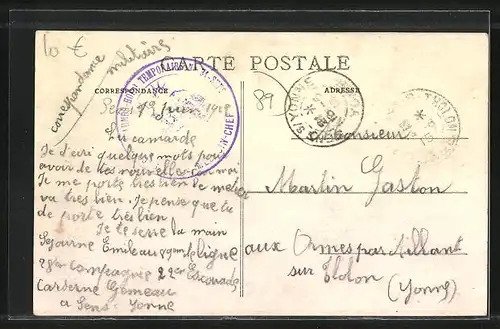 10 €
correspondance militaire
CARTE POSTALE
CORRESPONDANCE
ADRESSE
89
Sens
Je t'écri quelques mots pour
avoir de tes nouvelles
Je me porte très bien le métier
va très bien. Je pense que tu
de porte très bien
Je te serre la main
Séjourné Emile au de ligne
28e Compagnie 22e Escouade
Caserne Gémeau
a Sens - Yonne
Monsieur
Martin Gaston
aux Ormes par Aillant
sur Tholon
(Yonne)
TEMPORAIRE
EN-CHEF